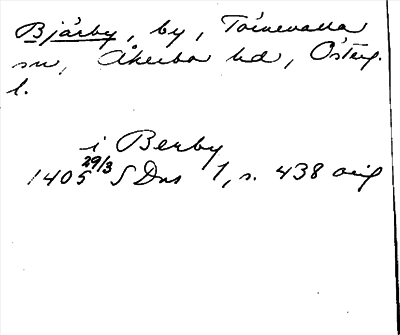 Bjärby, by, Törnevalla
sn, Åkerbo hd, Österg.
l.
i Berby
1405 29/3 SDns 1, s. 438 orig